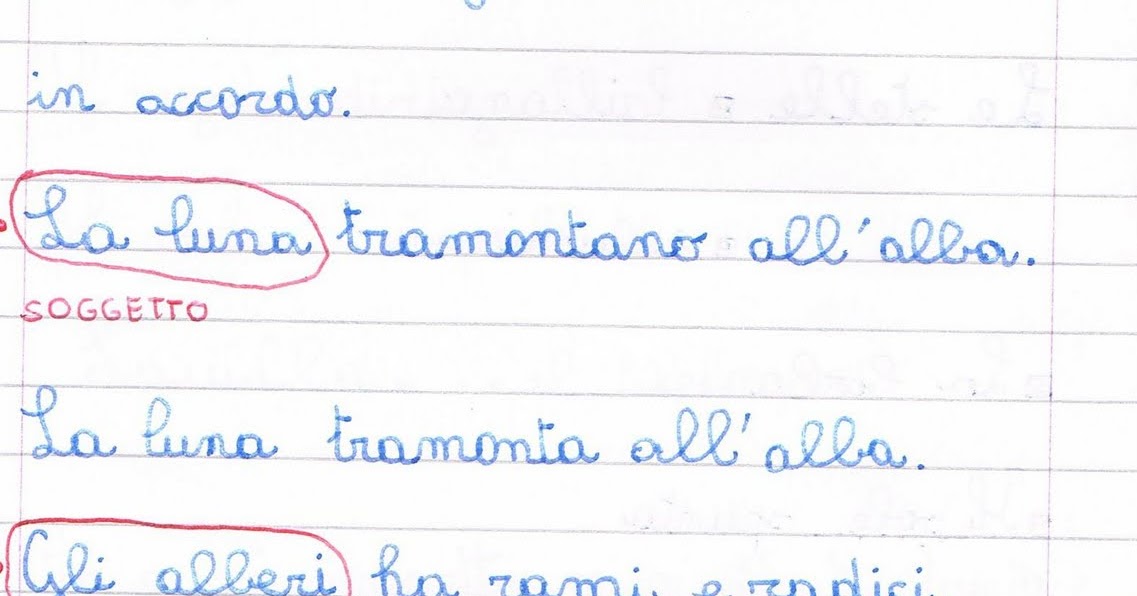 in accordo.
La luna tramontano all'alba.
SOGGETTO
La luna tramonta all'alba.
Gli alberi ha rami e radici